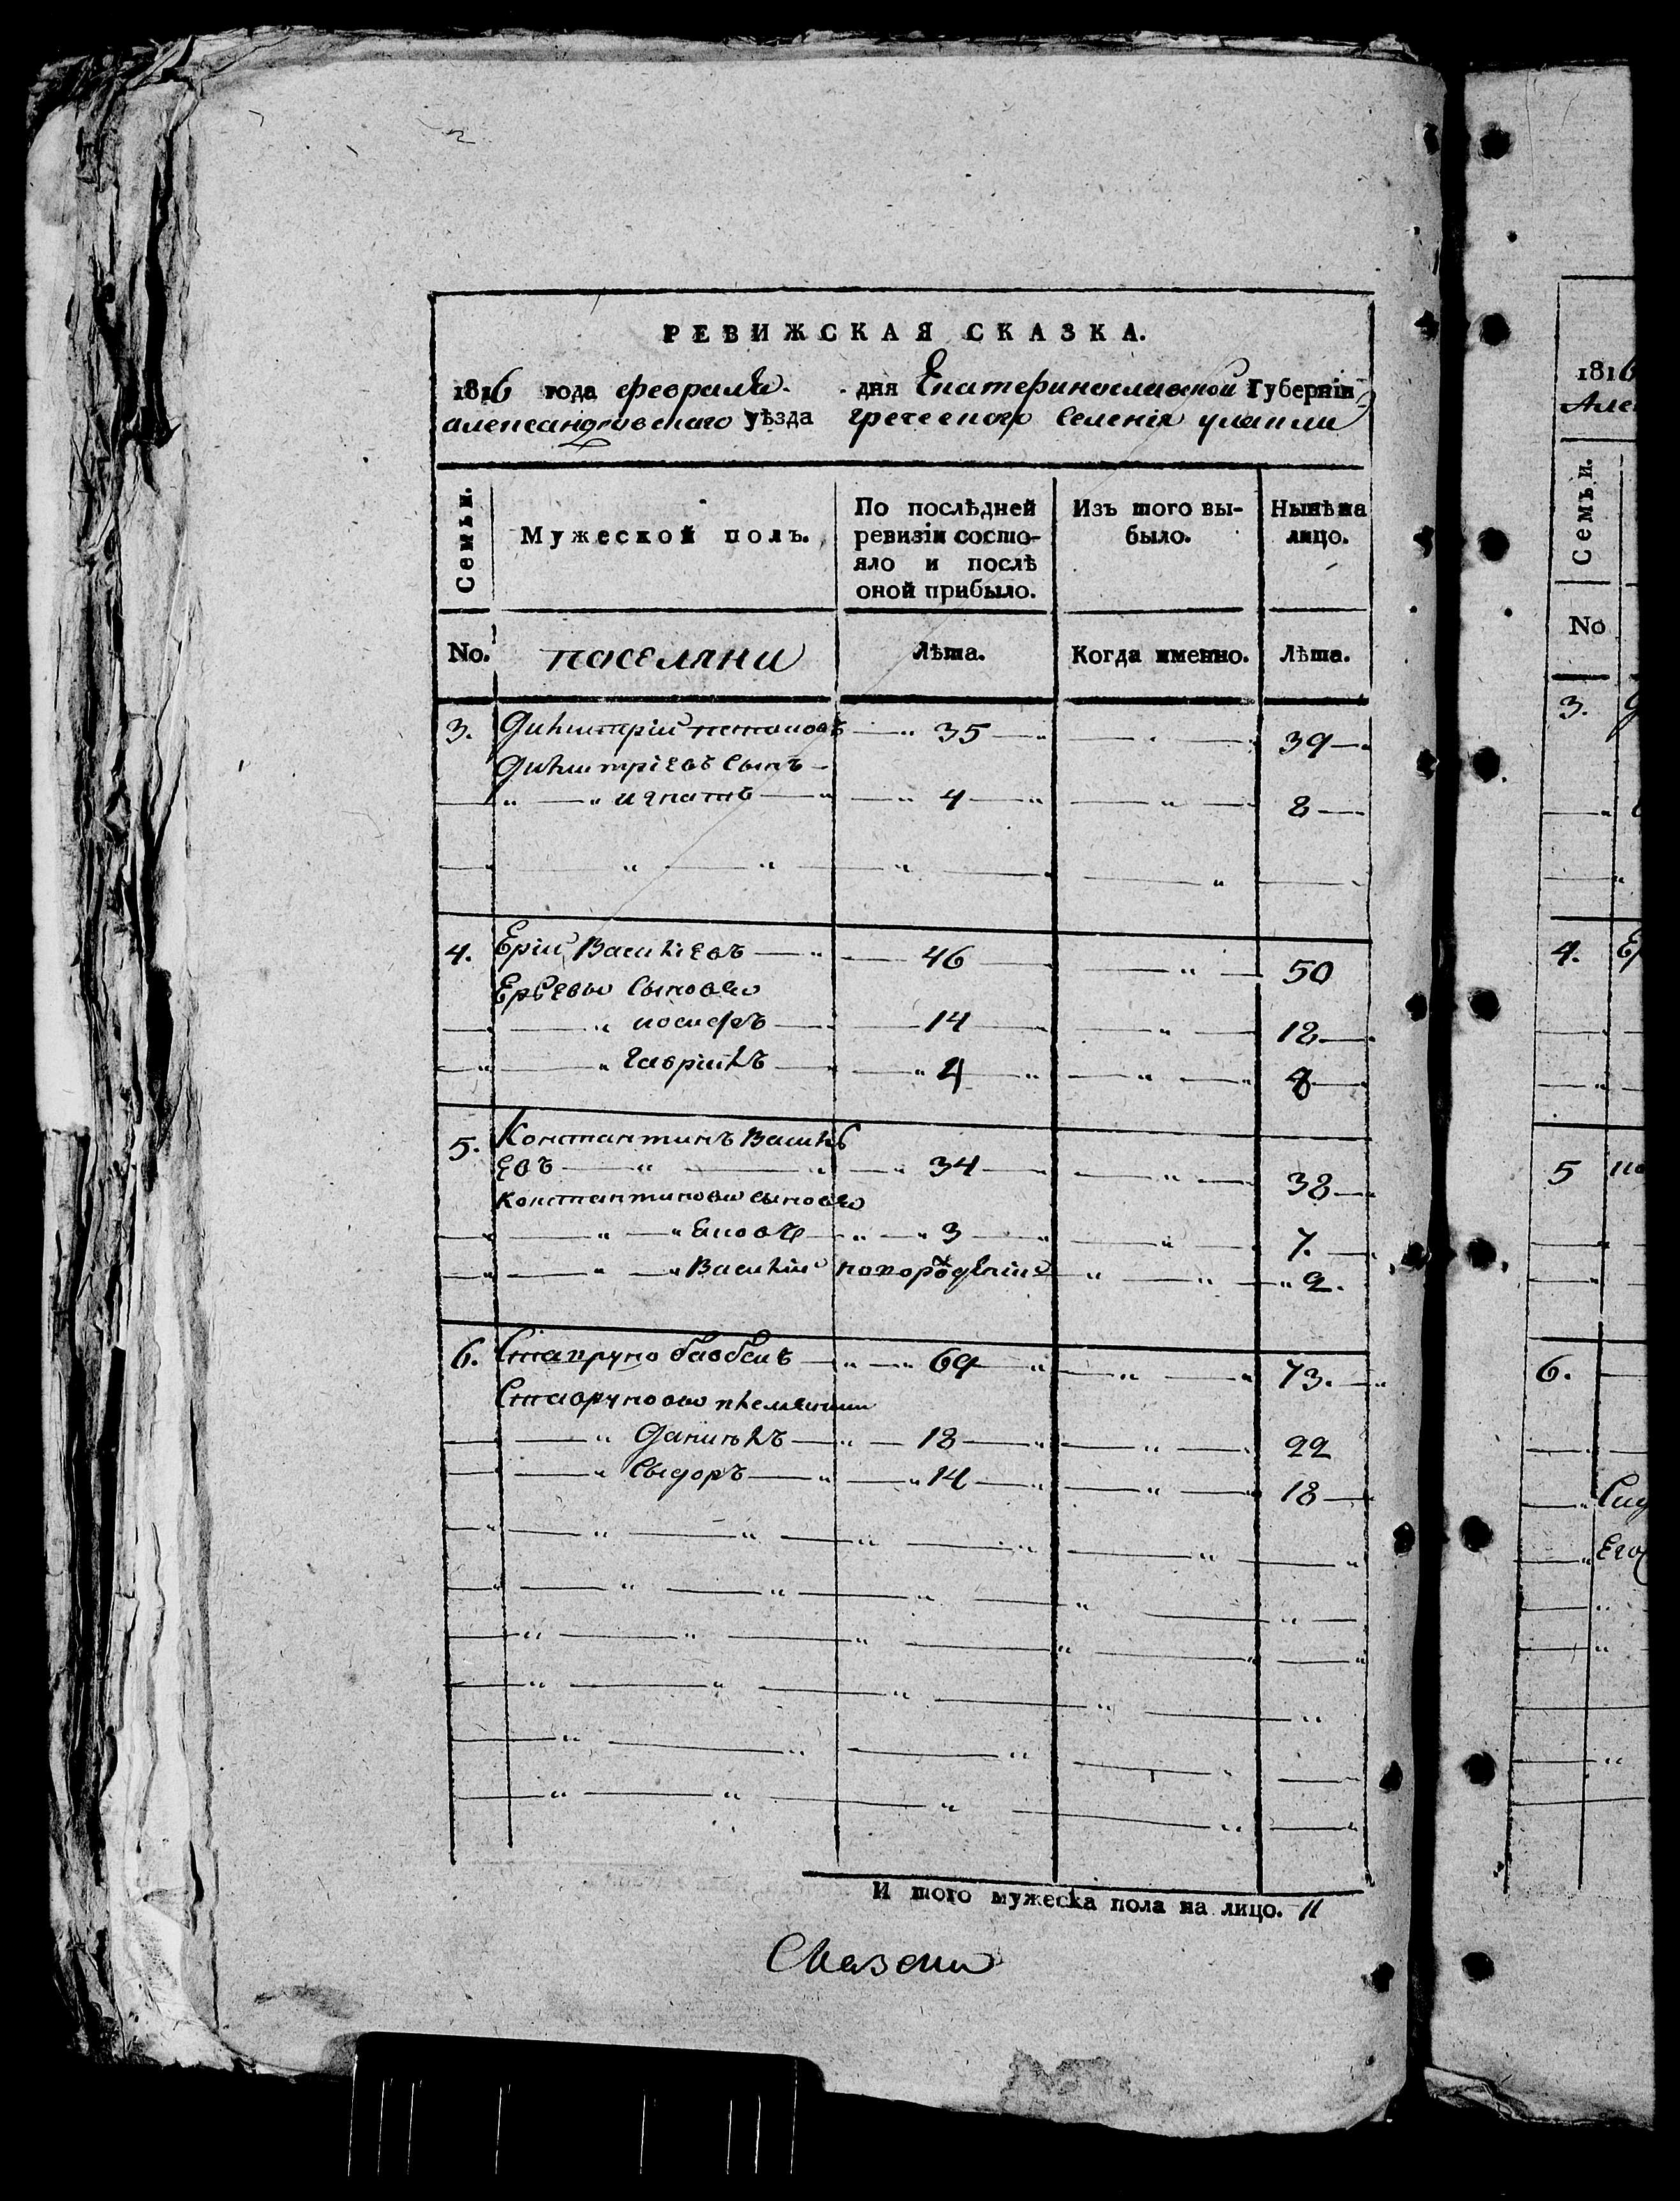 РЕВИЖСКАЯ СКАЗКА.
1816 года февраля дня Екатеринославской Губерніи
александровского уѣзда греческого селенія улаклы
Семьи.
Мужеской полъ.
По послѣдней ревизіи состояло и послѣ оной прибыло.
Изъ того выбыло.
Нынѣ на лицо.
No.
поселяни
Лѣта.
Когда именно.
Лѣта.
3. Димитрій 35 39
Димитріевъ сынъ
игнатъ 4 8
4. Ерій Василіевъ 46 50
Ерьевы сыновья
иосифъ 14 18
гаврилъ 4 8
5. Константинъ Василь
евъ 34 38
константиновы сыновья
яковъ 3 7.
Василій новорожденій 2.
6. 69 73.
Ставруновы племяники
Данилъ 18 22
Сыдоръ 14 18
И того мужеска пола на лицо. 11
1816
Але
Семъи.
No
3.
4. Ер
5
6.
Сид
Его